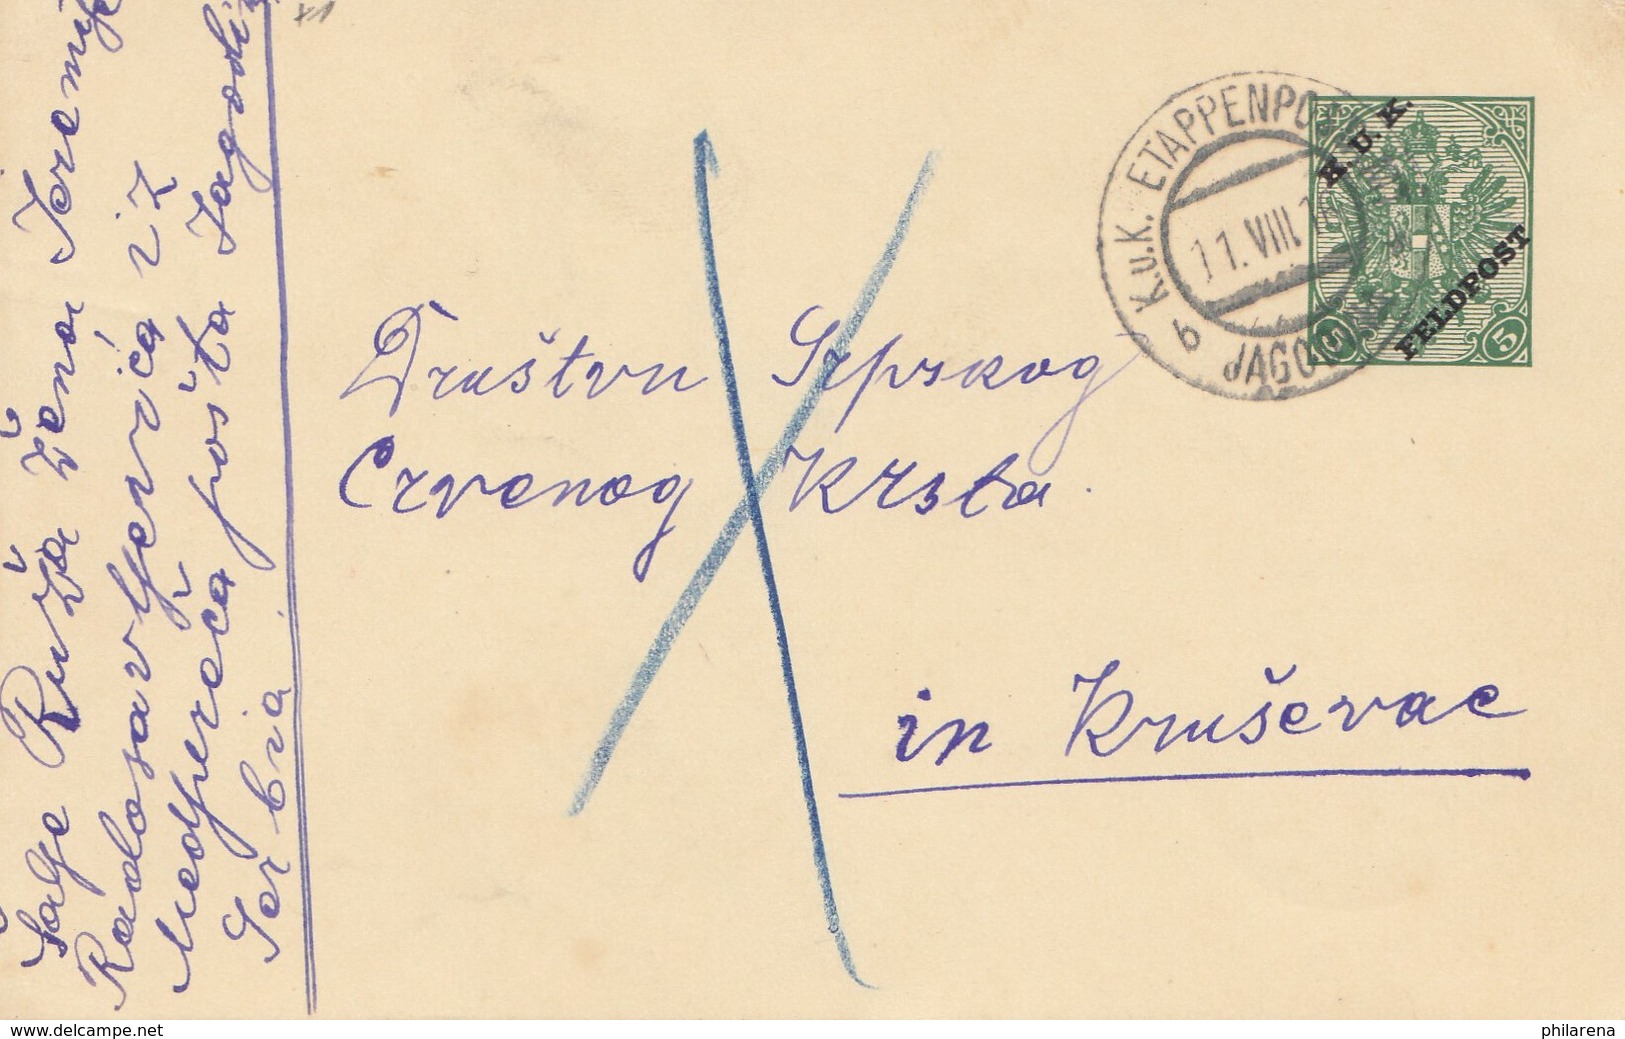 Šalje Ruža žena Jeremije
Radosavljevića iz
Medjereča pošta Jagodi
Serbia
K.u.K. ETAPPENPO
11. VIII. 1
b
JAGODI
K.U.K.
FELDPOST
5
Društvu Srpskog
Crvenog Krsta.
in Kruševac
www.delcampe.net
philarena